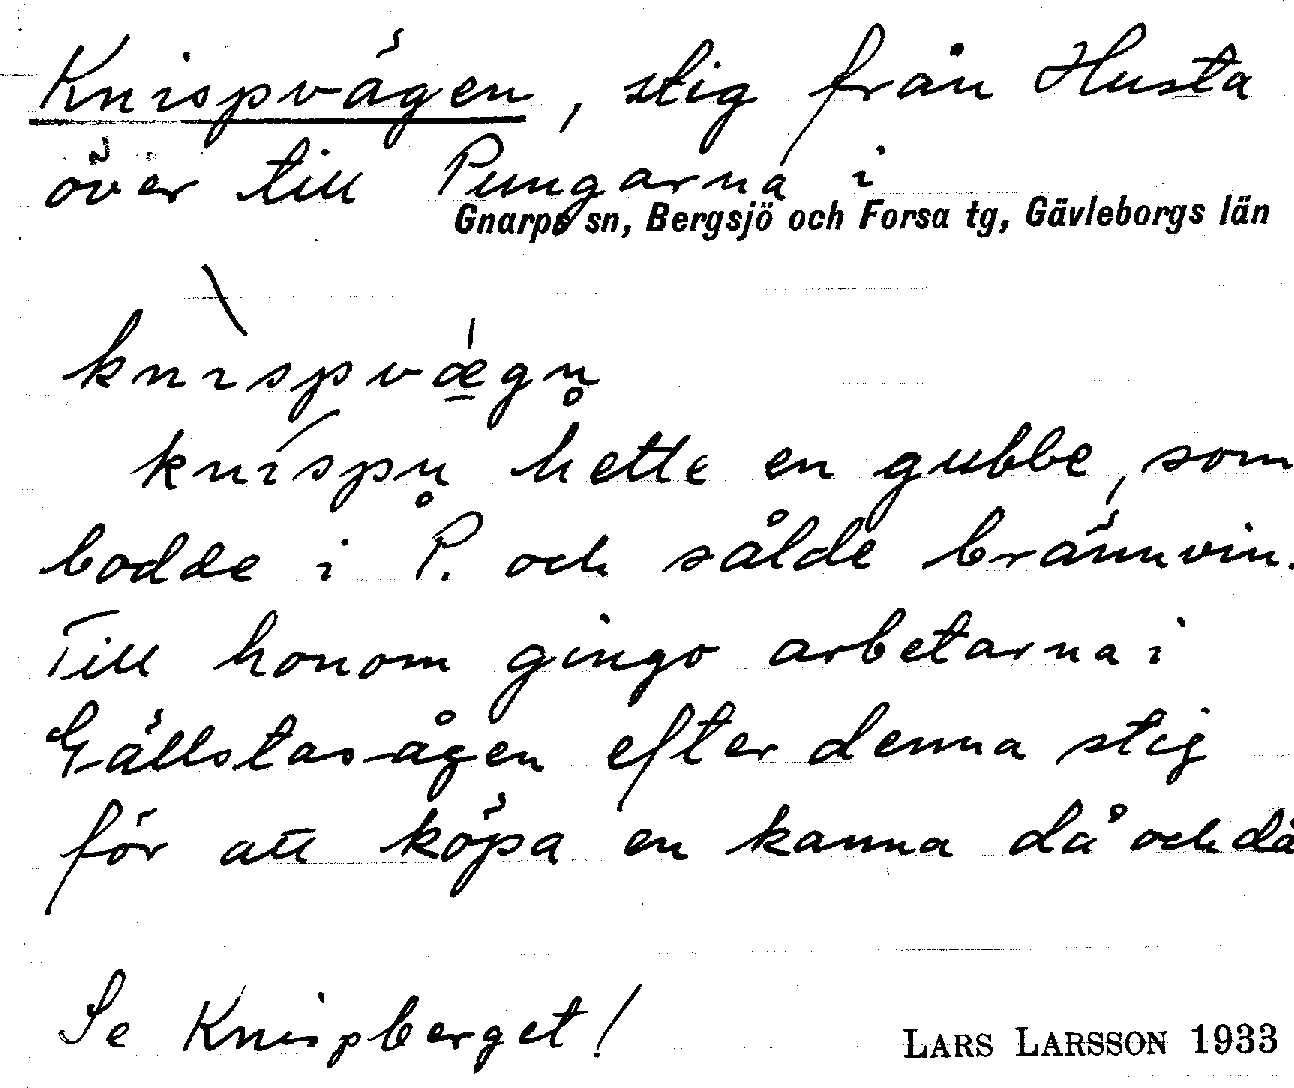 Knispvägen, stig från Husta
över till Pungarna i
Gnarps sn, Bergsjö och Forsa tg, Gävleborgs län
knìspvǽgn̥
kníspn̥ hette en gubbe, som
bodde i P. och sålde brännvin.
Till honom gingo arbetarna i
Gällstasågen efter denna stig
för att köpa en kanna då och då
Se Knispberget!
LARS LARSSON 1933